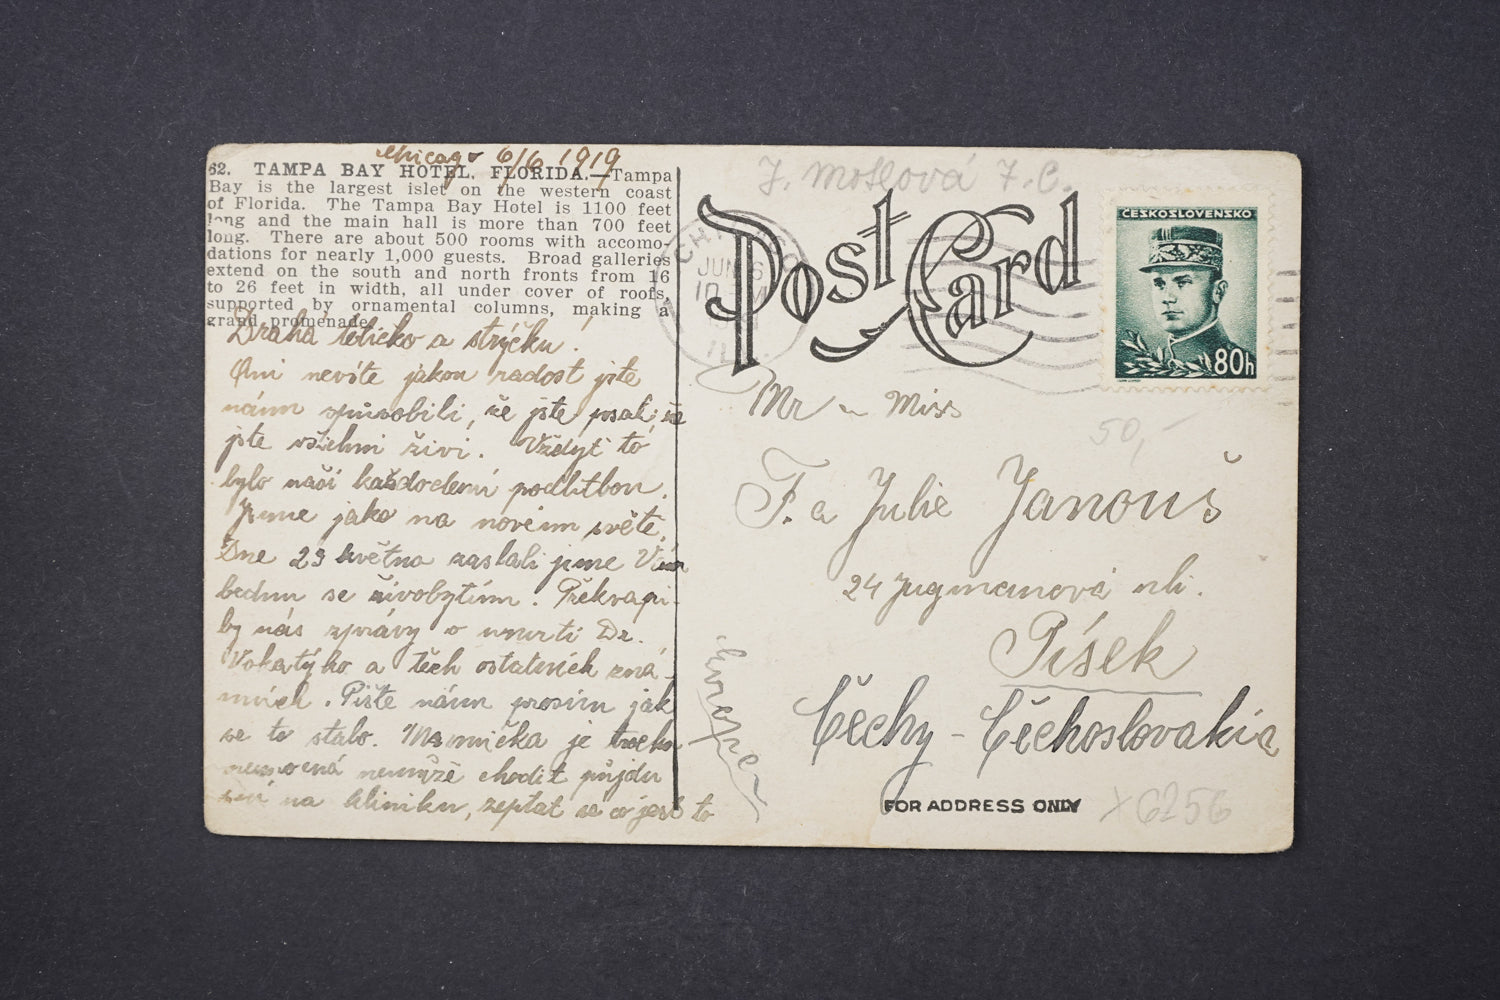 Chicago 6/6 1919
62. TAMPA BAY HOTEL, FLORIDA.—Tampa
Bay is the largest islet on the western coast
of Florida. The Tampa Bay Hotel is 1100 feet
long and the main hall is more than 700 feet
long. There are about 500 rooms with accomo-
dations for nearly 1,000 guests. Broad galleries
extend on the south and north fronts from 16
to 26 feet in width, all under cover of roofs,
supported by ornamental columns, making a
grand promenade.
Drahá tetičko a strýčku!
Ani nevíte jakou radost jste
nám způsobili, že jste psali, že
jste všichni živi. Vždyť to
bylo naší každodenní modlitbou.
Jsme jako na novém světě.
Dne 23 května zaslali jsme Vám
bednu se živobytím. Překvapi-
ly nás zprávy o úmrtí Dr.
Vokatýho a těch ostatních zná-
mých. Pište nám prosím jak
se to stalo. Maminka je trochu
nemocná nemůže chodit půjdu
na kliniku, zeptat se co jest to
J. Moslová F.C.
POST CARD
CHICAGO
JUN 6
10
ILL.
ČESKOSLOVENSKO
80h
Mr a Miss
50,-
F. a Julie Janouš
24 Jugmanová uli.
Písek
Čechy - Čechoslovakia
Evropa
FOR ADDRESS ONLY
X6256